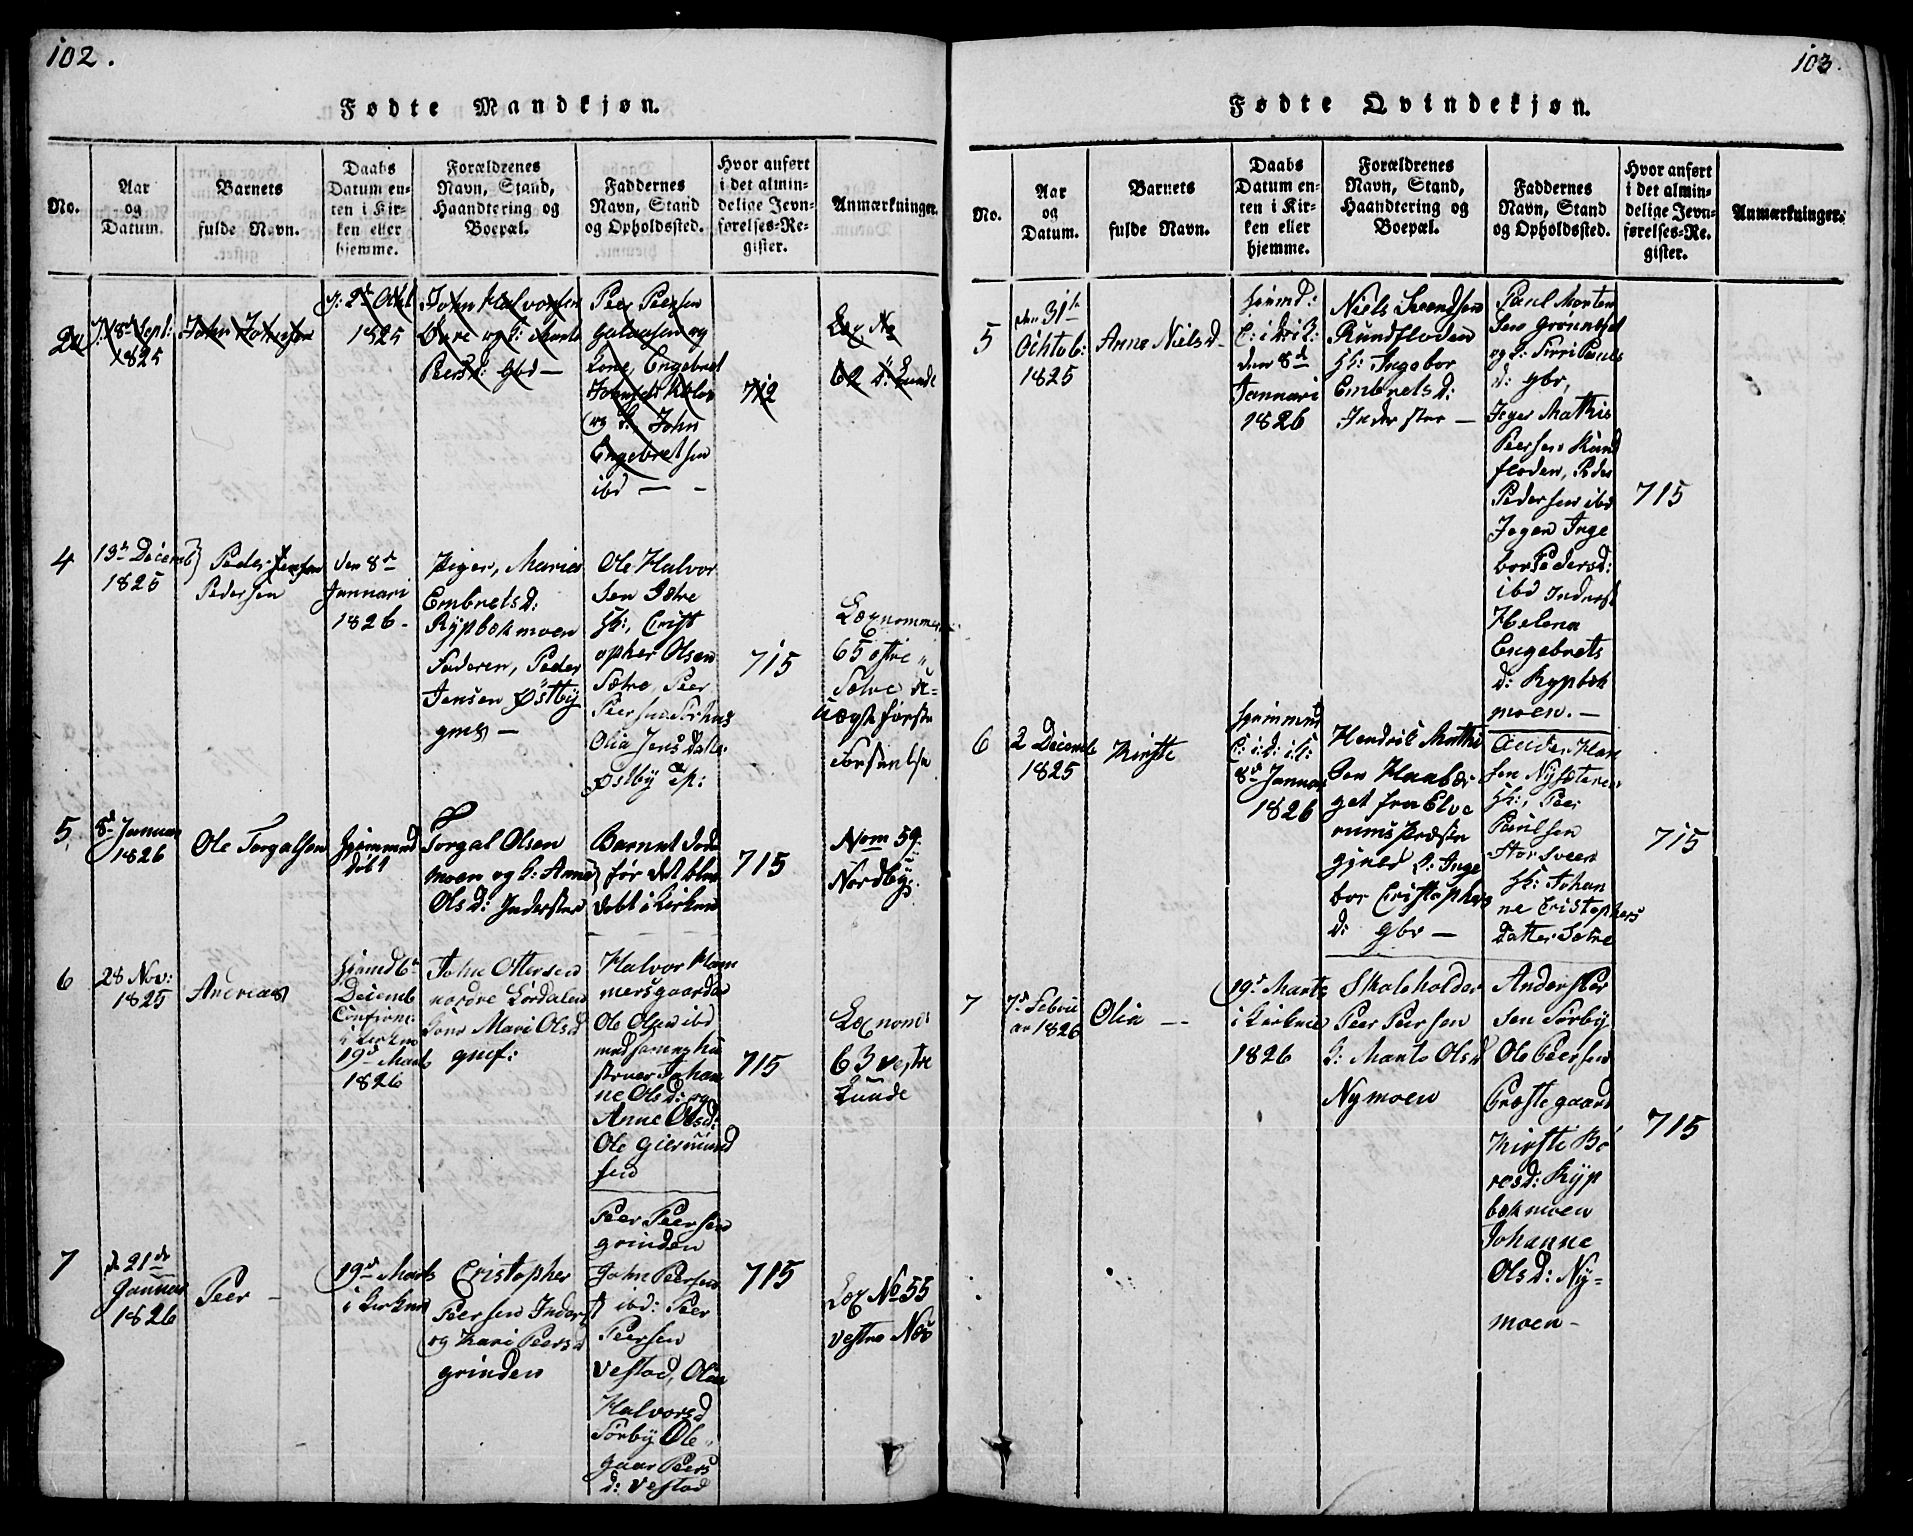 102.
Fødte Mandkjøn.
No.
Aar
og
Datum.
Barnets
fulde Navn.
Daabs
Datum en-
ten i Kir-
ken eller
hjemme.
Forældrenes
Navn, Stand,
Haandtering og
Boepæl.
Faddernes
Navn, Stand
og Opholdssted.
Hvor anført
i det almin-
delige Jevn-
førelses-Re-
gister.
Anmærkninger.
18d Sept:
1825
John Johnsen
2d Octbl
1825
John Halvorsen
og Marte
Peersd: Gbd —
Peer Peersen
og
Engebret
og John
Engebretsen
ibd — -
712
Lægd No
62 Lunde
4
13de Decemb
1825
Peder Jensen
Pedersen
den 8d
Januari
1826 -
Piger, Maria
Embretsd:
Rypbekmoen
Faderen, Peder
Jensen Østby
gms —
Ole Halvor
sen Sætre
Crist
opher Olsen
Sætre, Peer
Peersen
Olia Jens Datter
Østby
715
Lægnommer
65 østre
Sætre
første
5
8d Januar
1826
Ole Torgalsen
Hjemmed
døbt
Torgal Olsen
moen og H: Anne
Olsd: Inderster
Barnet døde
før det blev
døbt i Kirken
715
Nom 59
Nordbye
6
28 Nov:
1825
Andreas
Hjemdbt
Decemb
Confirm:
i Kirken
19d Marts
1826
John Ottersen
nordre Lørdalen
Mari Olsd
gmf:
Halvor Ham
mersgaarden
Ole Olsen ibd
Johan
ne Olsd: og
Anne Olsd:
Ole Giermund
sen
715
Lægnom:
63 vestre
Lunde
7
d 21de
Januar
1826
Peer -
19d Marts
i Kirken
Cristopher
Peersen Inderst
og Kari Peersd
grinden
Peer Peersen
grinden
John Peersen
ibd: Peer
Peersen
Vestad, Olia
Halvorsd
Sørby Ole
gaar Peers
d: Vestad
715
Læg No 55
vestre Næs
103.
Fødte Qvindekjøn.
No.
Aar
og
Datum.
Barnets
fulde Navn.
Daabs
Datum en-
ten i Kir-
ken eller
hjemme.
Forældrenes
Navn, Stand,
Haandtering og
Boepæl.
Faddernes
Navn, Stand
og Opholdssted.
Hvor anført
i det almin-
delige Jevn-
førelses-Re-
gister.
Anmærkninger.
5
den 31te
Ochtob:
1825
Anne Nielsd -
Hjemd:
C: i Kirk:
den 8d
Januari
1826
Niels Svendsen
Rundfloden
H: Ingebor
Embretsd:
Inderster —
Paul Morten
sen Grønnset
og H: Sirri Pauls
d: gbr,
Jeger Mathis
Peersen Rund
floden, Peder
Pedersen ibd
Jegen Inge
bor Pedersd:
ibd Inderst
Helena
Engebrets
d: Rypbek
moen. —
715
6
2 Decemb
1825
Kirsti
Hjemmed
C: i d: i K:
8d Januar
1826
Hendrik Mathi
sen Haaber
get fra Elve
rums Præste
gjeld H: Inge
bor Cristophers
d: gbr —
Ander Han
sen Nysæteren
H:, Peer
Paulsen
Storsveen
H: Johan
ne Cristophers
Datter Sætre
715
7
7d Febru
ar 1826
Olia --
19d Marts
i Kirken
1826
Skoleholder
Peer Peersen
H: Marte Olsd
Nymoen
Ander Peer
sen Sørby
Ole Peersen
Præstegaard
Kirsti Bo
resd: Ryp
bekmoen
Johanne
Olsd: Ny-
moen -
715